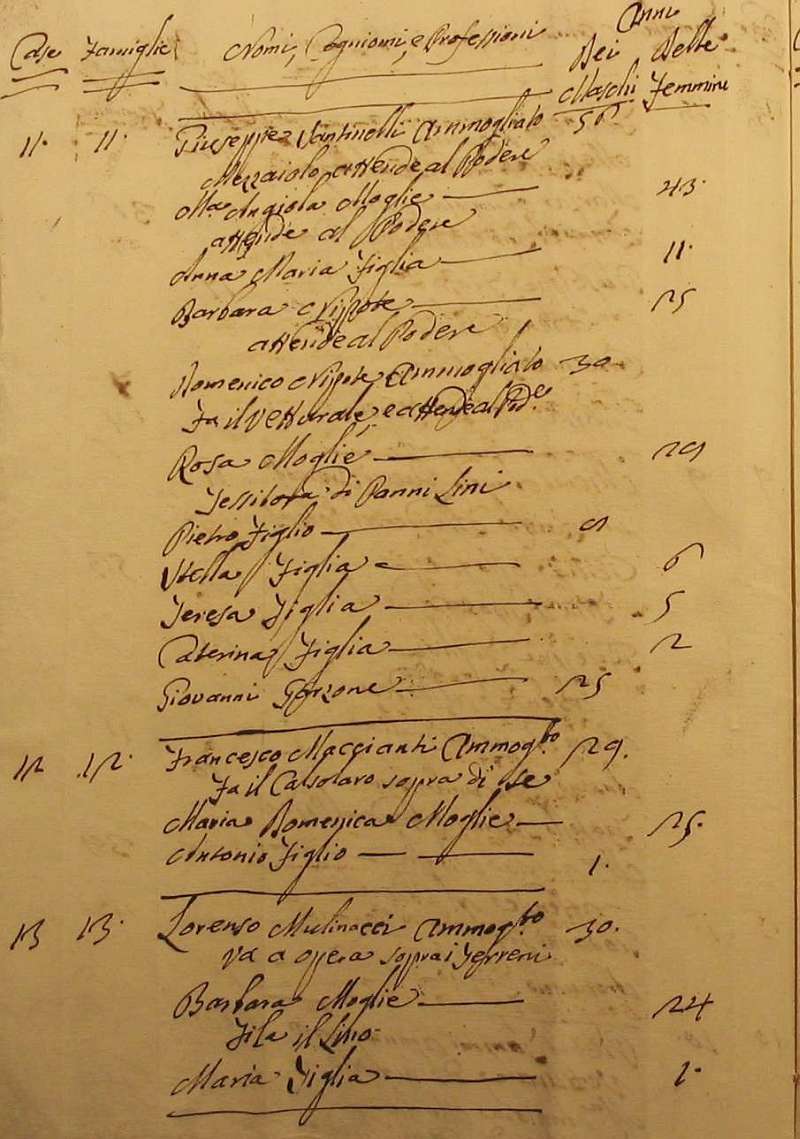 Anni
Case Famiglie Nomi, Cogniomi, e Professioni Dei Delle
Maschi Femmine
11. 11. Giuseppe Santinelli Ammogliato 56
Mezzaiolo, attende al Podere
M.a Angiola Moglie 43.
attende al Podere
Anna Maria Figlia 11.
Barbara Nipote 25
attende al Podere
Domenico Nipote Ammogliato 30
Fa il Vetturale, e attende al Pod.e
Rosa Moglie 29
Tessitora di Panni Lini
Pietro Figlio 9
Stella Figlia 6
Teresa Figlia 5
Caterina Figlia 2
Giovanni Garzone 25
12 12. Francesco Maccianti Ammog.to 29.
Fa il Calsolaro sopra di se
Maria Domenica Moglie 25.
Antonio Figlio 1.
13 13. Lorenso Mulinacci Ammog.to 30.
Va a opera sopra i Terreni
Barbara Moglie 24
Fila il Lino
Maria Figlia 1.